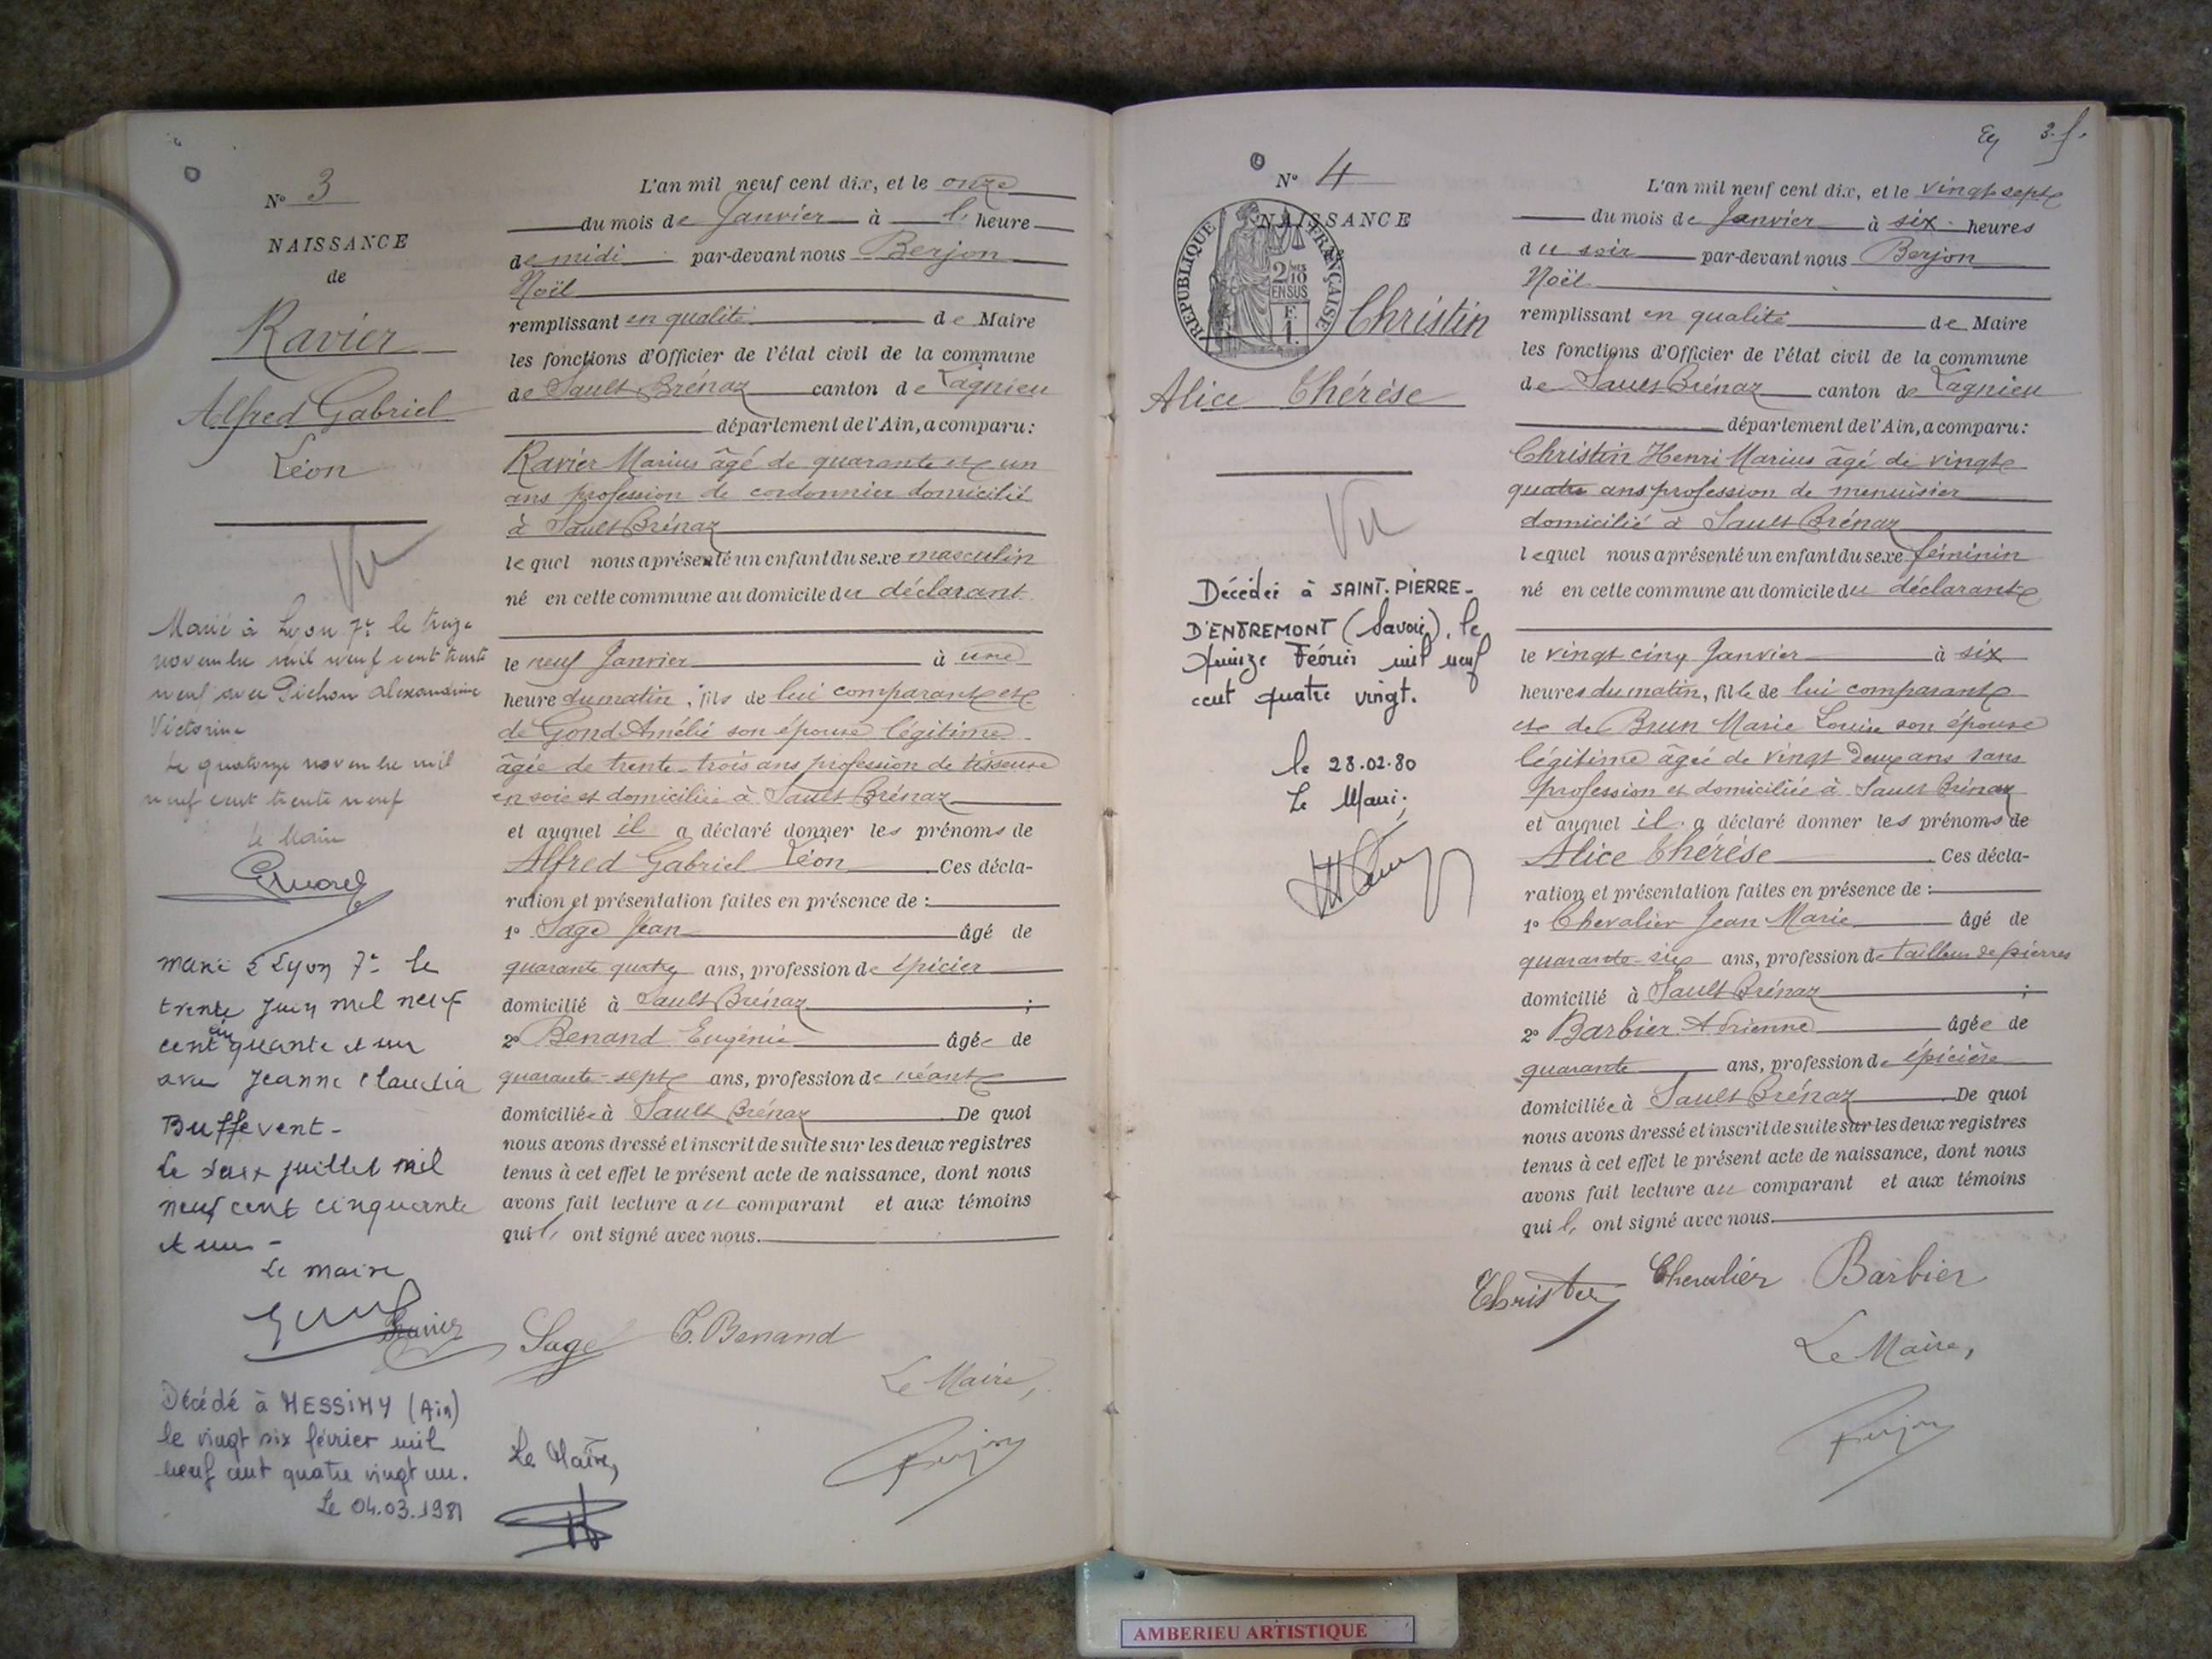 N° 3
NAISSANCE
de
Ravier
Alfred Gabriel
Léon
Vu
Marié à Lyon 7e le treize
novembre mil neuf cent trente
neuf avec Pichon Alexandrine
Victorine
Le quatorze novembre mil
neuf cent trente neuf
Le Maire
Marié à Lyon 7e le
trente juin mil neuf
cent cinquante et un
avec Jeanne Claudia
Buffevent -
Le deux juillet mil
neuf cent cinquante
et un -
Le maire
Décédé à MESSIMY (Ain)
le vingt six février mil
neuf cent quatre vingt un.
Le 04.03.1981
L'an mil neuf cent dix, et le onze
du mois de Janvier à l' heure
de midi par-devant nous Berjon
Noël
remplissant en qualité de Maire
les fonctions d'Officier de l'état civil de la commune
de Sault Brénaz canton de Lagnieu
département de l'Ain, a comparu:
Ravier Marius âgé de quarante et un
ans profession de cordonnier domicilié
à Sault Brénaz
lequel nous a présenté un enfant du sexe masculin
né en cette commune au domicile du déclarant
le neuf Janvier à une
heure du matin, fils de lui comparant et
de Gond Amélie son épouse légitime
âgée de trente-trois ans profession de tisseuse
en soie et domiciliée à Sault Brénaz
et auquel il a déclaré donner les prénoms de
Alfred Gabriel Léon Ces décla-
ration et présentation faites en présence de :
1° Sage Jean âgé de
quarante quatre ans, profession de épicier
domicilié à Sault Brénaz ;
2° Benand Eugénie âgée de
quarante-sept ans, profession de néant
domiciliée à Sault Brénaz De quoi
nous avons dressé et inscrit de suite sur les deux registres
tenus à cet effet le présent acte de naissance, dont nous
avons fait lecture au comparant et aux témoins
qui l, ont signé avec nous.
Ravier Sage E. Benand
Le Maire,
Berjon
Le Maire,
Ey 3.f.
N° 4
NAISSANCE
REPUBLIQUE FRANÇAISE
2/10 MES
EN SUS
F.
1.
Christin
Alice Thérèse
Vu
Décédée à SAINT-PIERRE-
D'ENTREMONT (Savoie), le
quinze Février mil neuf
cent quatre vingt.
le 28.02.80
Le Maire,
L'an mil neuf cent dix, et le vingt sept
du mois de Janvier à six heures
du soir par-devant nous Berjon
Noël
remplissant en qualité de Maire
les fonctions d'Officier de l'état civil de la commune
de Sault Brénaz canton de Lagnieu
département de l'Ain, a comparu:
Christin Henri Marius âgé de vingt
quatre ans profession de menuisier
domicilié à Sault Brénaz
lequel nous a présenté un enfant du sexe féminin
né en cette commune au domicile du déclarant
le vingt cinq Janvier à six
heures du matin, fille de lui comparant
et de Brun Marie Louise son épouse
légitime âgée de vingt deux ans sans
profession et domiciliée à Sault Brénaz
et auquel il a déclaré donner les prénoms de
Alice Thérèse Ces décla-
ration et présentation faites en présence de :
1° Chevalier Jean Marie âgé de
quarante-six ans, profession de tailleur de pierres
domicilié à Sault Brénaz ;
2° Barbier Adrienne âgée de
quarante ans, profession de épicière
domiciliée à Sault Brénaz De quoi
nous avons dressé et inscrit de suite sur les deux registres
tenus à cet effet le présent acte de naissance, dont nous
avons fait lecture au comparant et aux témoins
qui l, ont signé avec nous.
Christin Chevalier Barbier
Le Maire,
Berjon
AMBERIEU ARTISTIQUE